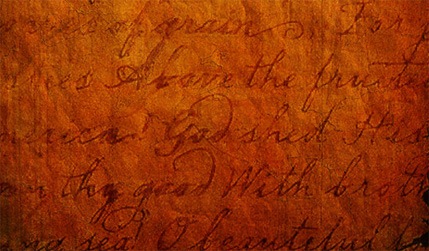 waves of grain, For p
ies Above the fruited
merica! God shed His
wn thy good With broth
ing sea! O beautiful f